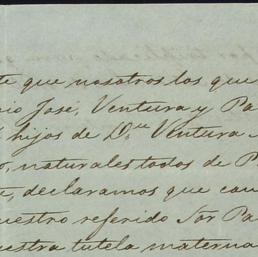 te que nosotros los que
rio José, Ventura y Pa
hijos de Dn Ventura
o, naturales todos de P
te, declaramos que cau
uestro referido Sor Pa
uestra tutela materna